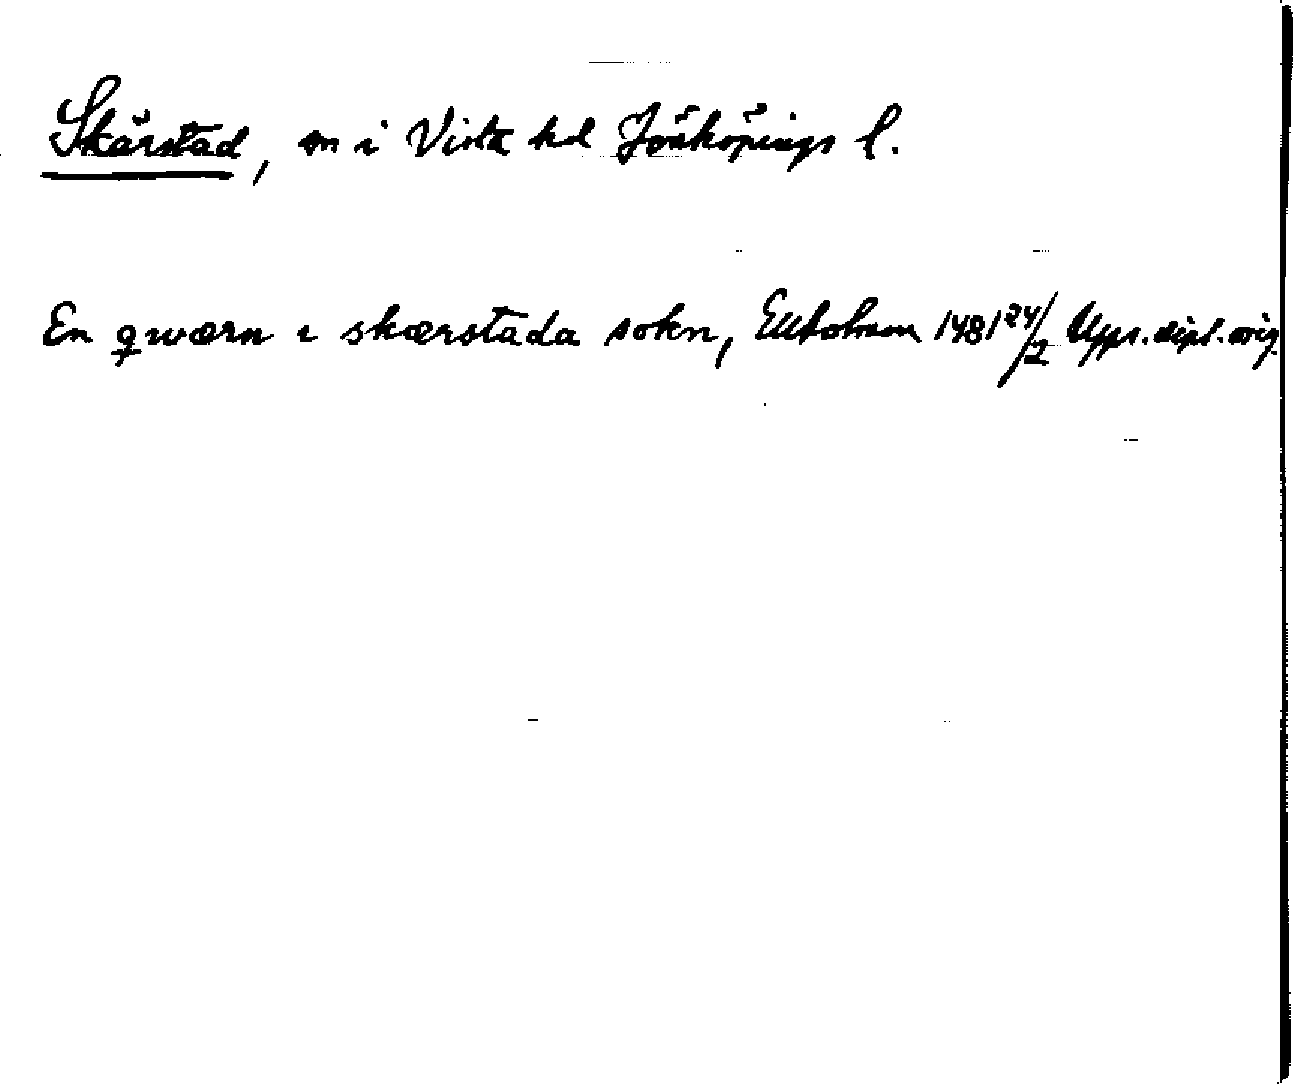 Skärstad, sn i Vista hd Jönköpings l.
En qwærn i skærstada sokn, Ekholmen 1481 24/2 Upps. dipl. orig.